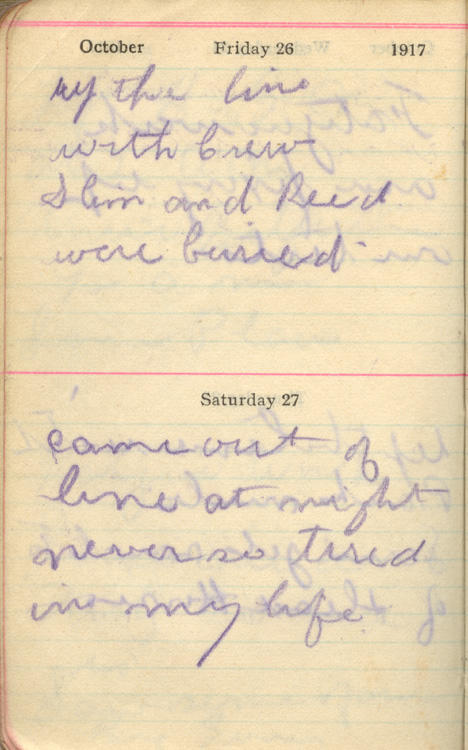 October Friday 26 1917
up the line
with crew
Slim and Reed
were buried
Saturday 27
came out of
line at night
never so tired
in my life